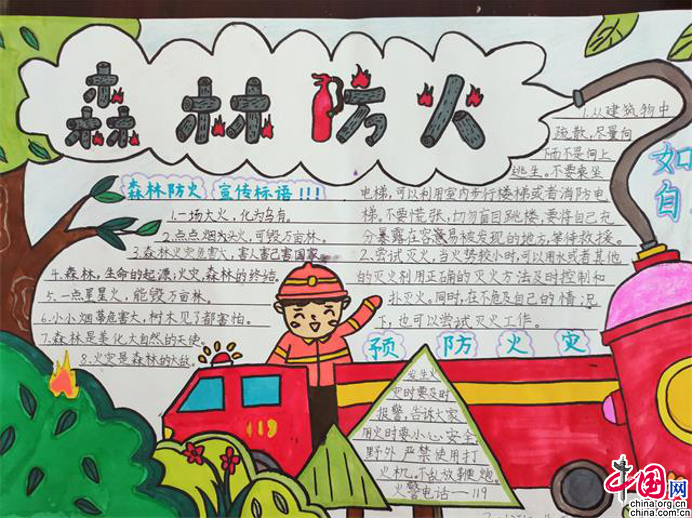 森林防火
森林防火 宣传标语!!!
1.一场大火,化为乌有。
2.点点烟头火,可毁万亩林。
3.森林火灾危害大,害人害己害国家
4.森林,生命的起源;火灾,森林的终结。
5.一点星星火,能毁万亩林。
6.小小烟蒂危害大,树木见了都害怕。
7.森林是美化大自然的天使。
8.火灾是森林的大敌。
1.从建筑物中
疏散,尽量向
而不是向上
逃生。不要乘坐
电梯,可以利用室内步行楼梯或者消防电
梯,不要慌张,切勿盲目跳楼,要将自己充
分暴露在容易被发现的地方,等待救援。
2.尝试灭火,当火势较小时,可以用水或者其他
的灭火剂用正确的灭火方法及时控制和
扑灭火。同时,在不危及自己的情况
下,也可以尝试灭火工作。
如
自
预防火灾
发生火
灾时要及时
报警,告诉大家
用火时要小心安全
野外严禁使用打
火机。不乱放鞭炮。
火警电话——119
119
中国网
china.org.cn
china.com.cn